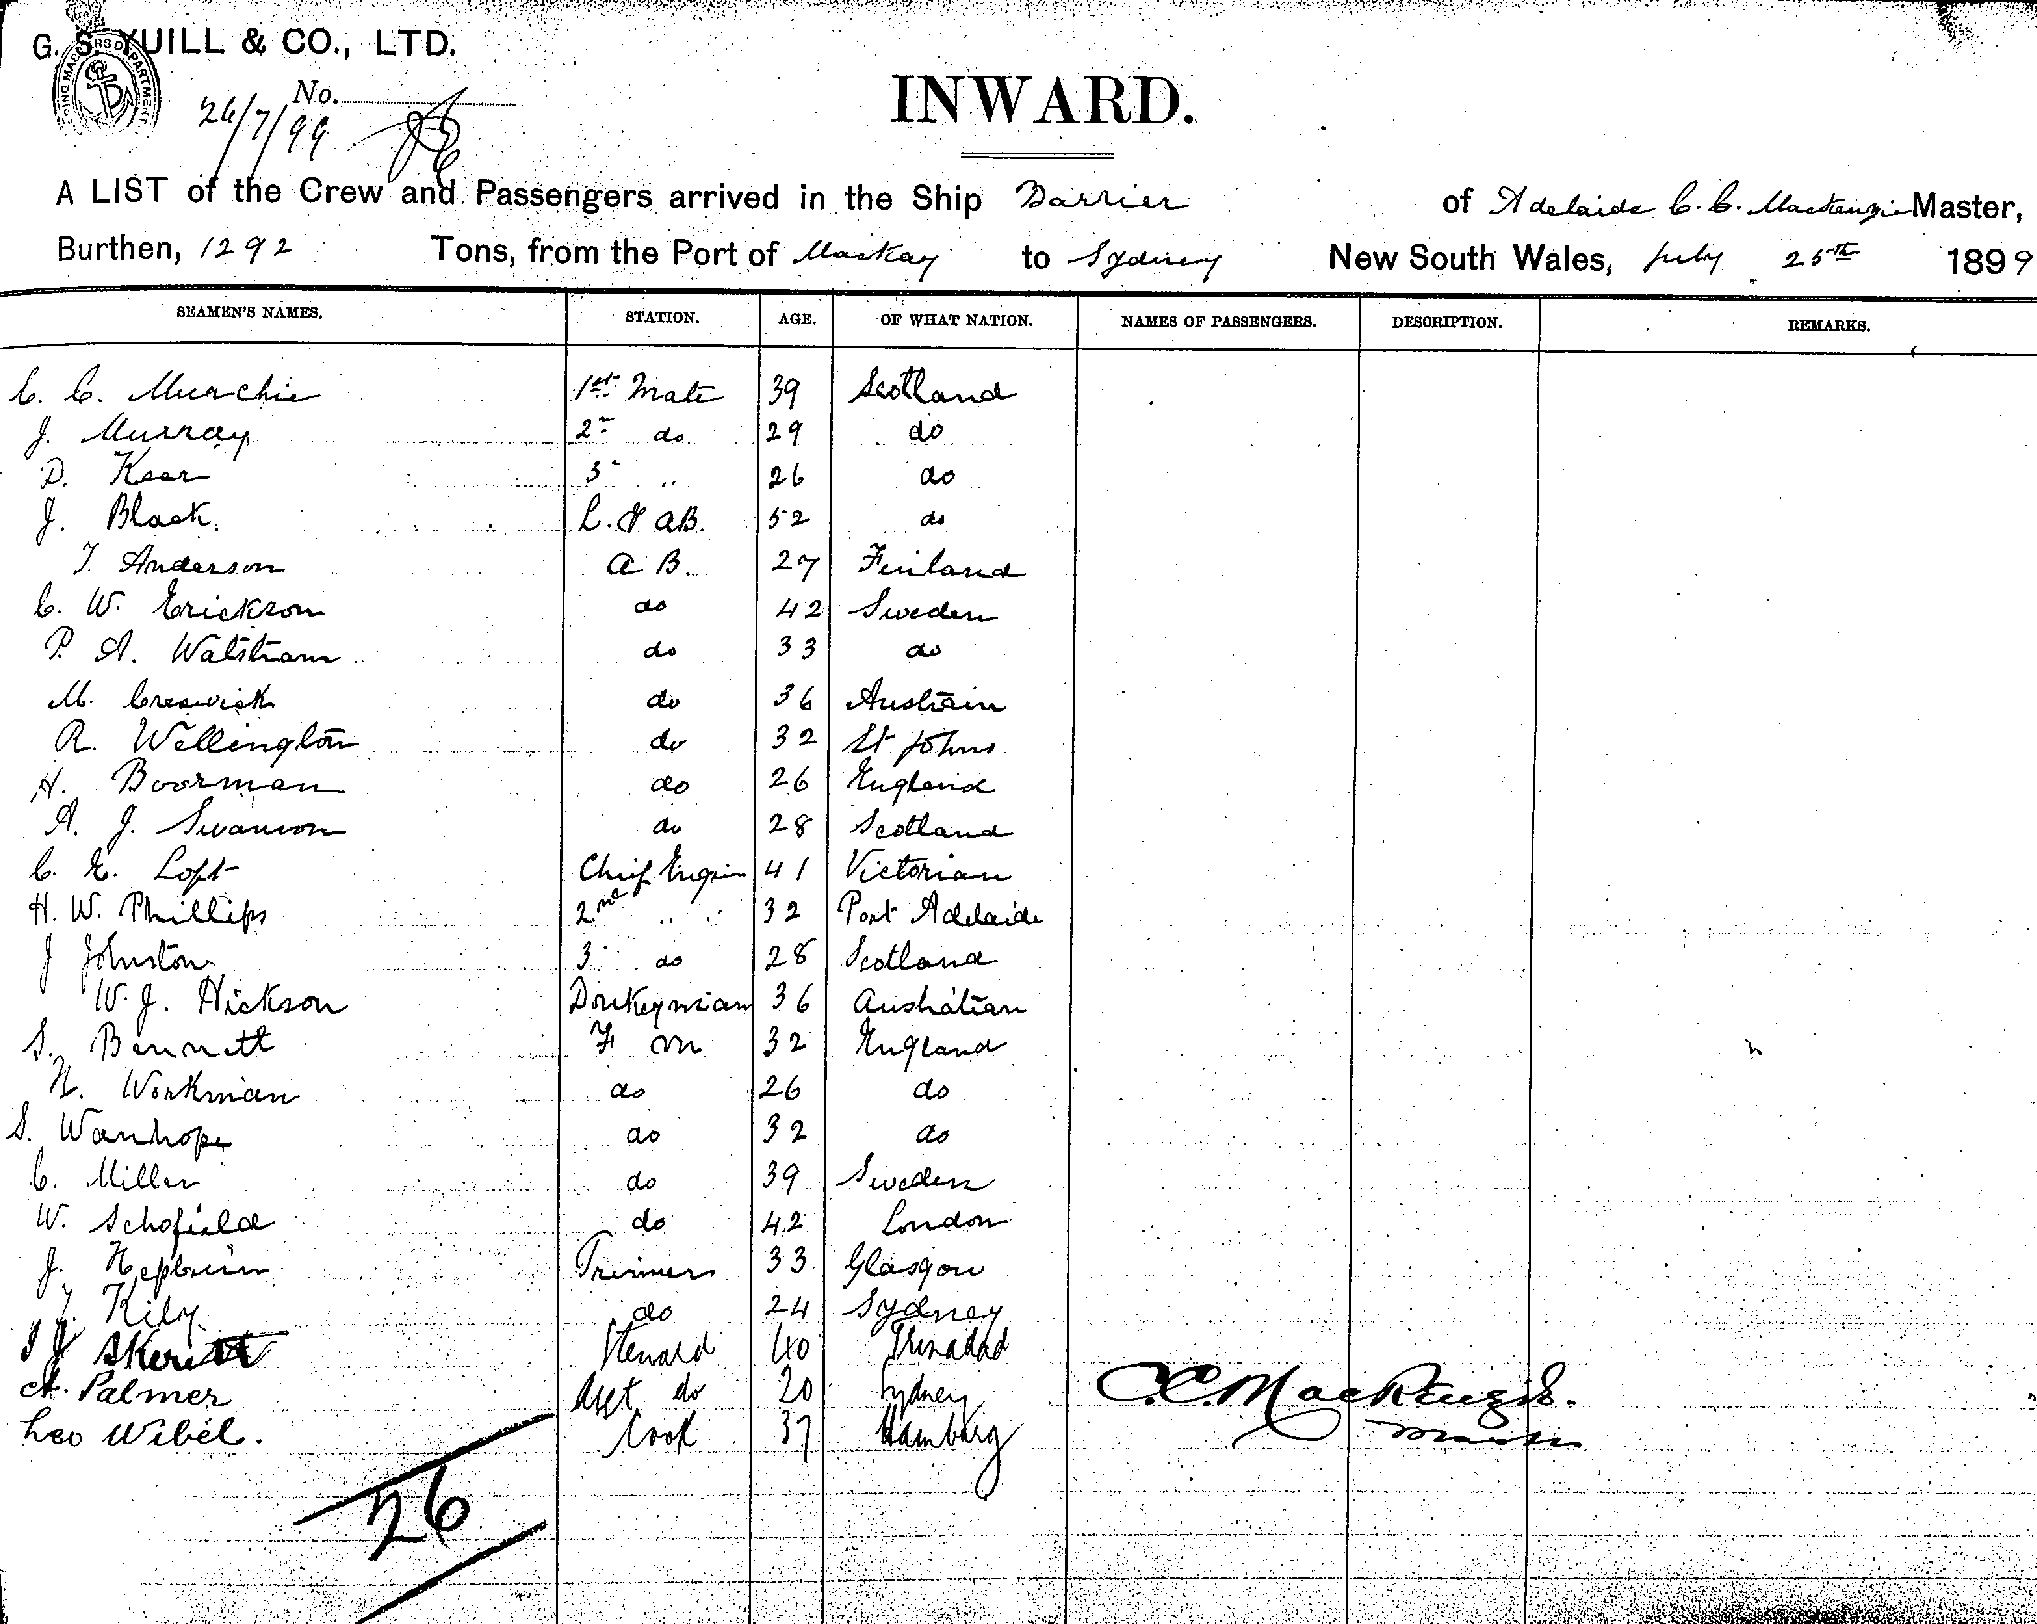 G. S. YUILL & CO., LTD.
No.
26/7/99
INWARD.
A LIST of the Crew and Passengers arrived in the Ship Barrier of Adelaide C. C. Mackenzie Master,
Burthen, 1292 Tons, from the Port of Mackay to Sydney New South Wales, July 25th 1899
SEAMEN'S NAMES. STATION. AGE. OF WHAT NATION. NAMES OF PASSENGERS. DESCRIPTION. REMARKS.
C. C. Murchie 1st Mate 39 Scotland
J. Murray 2nd do 29 do
D. Keer 3 " 26 do
J. Black. L. & AB. 52 do
T. Anderson A B. 27 Finland
C. W. Erickson do 42 Sweden
P. A. Walstram do 33 do
M. Creswick do 36 Austrain
R. Wellington do 32 St Johns
H. Boorman do 26 England
A. J. Swanson do 28 Scotland
C. E. Loft Chief Engin 41 Victorian
H. W. Phillips 2nd " " 32 Port Adelaide
J Johnston 3 do 28 Scotland
W. J. Hickson Donkeyman 36 Australian
S. Bennett F M 32 England
N. Workman do 26 do
S. Wanhope do 32 do
C. Miller do 39 Sweden
W. Schofield do 42 London
J. Hepburn Trimmers 33 Glasgow
J. Kily do 24 Sydney
J J Skeritt Steward 40 Trinadad
A. Palmer Asst do 20 Sydney
Leo Wibel. Cook 37 Hamburg
C. C. MacKenzie.
Master
26